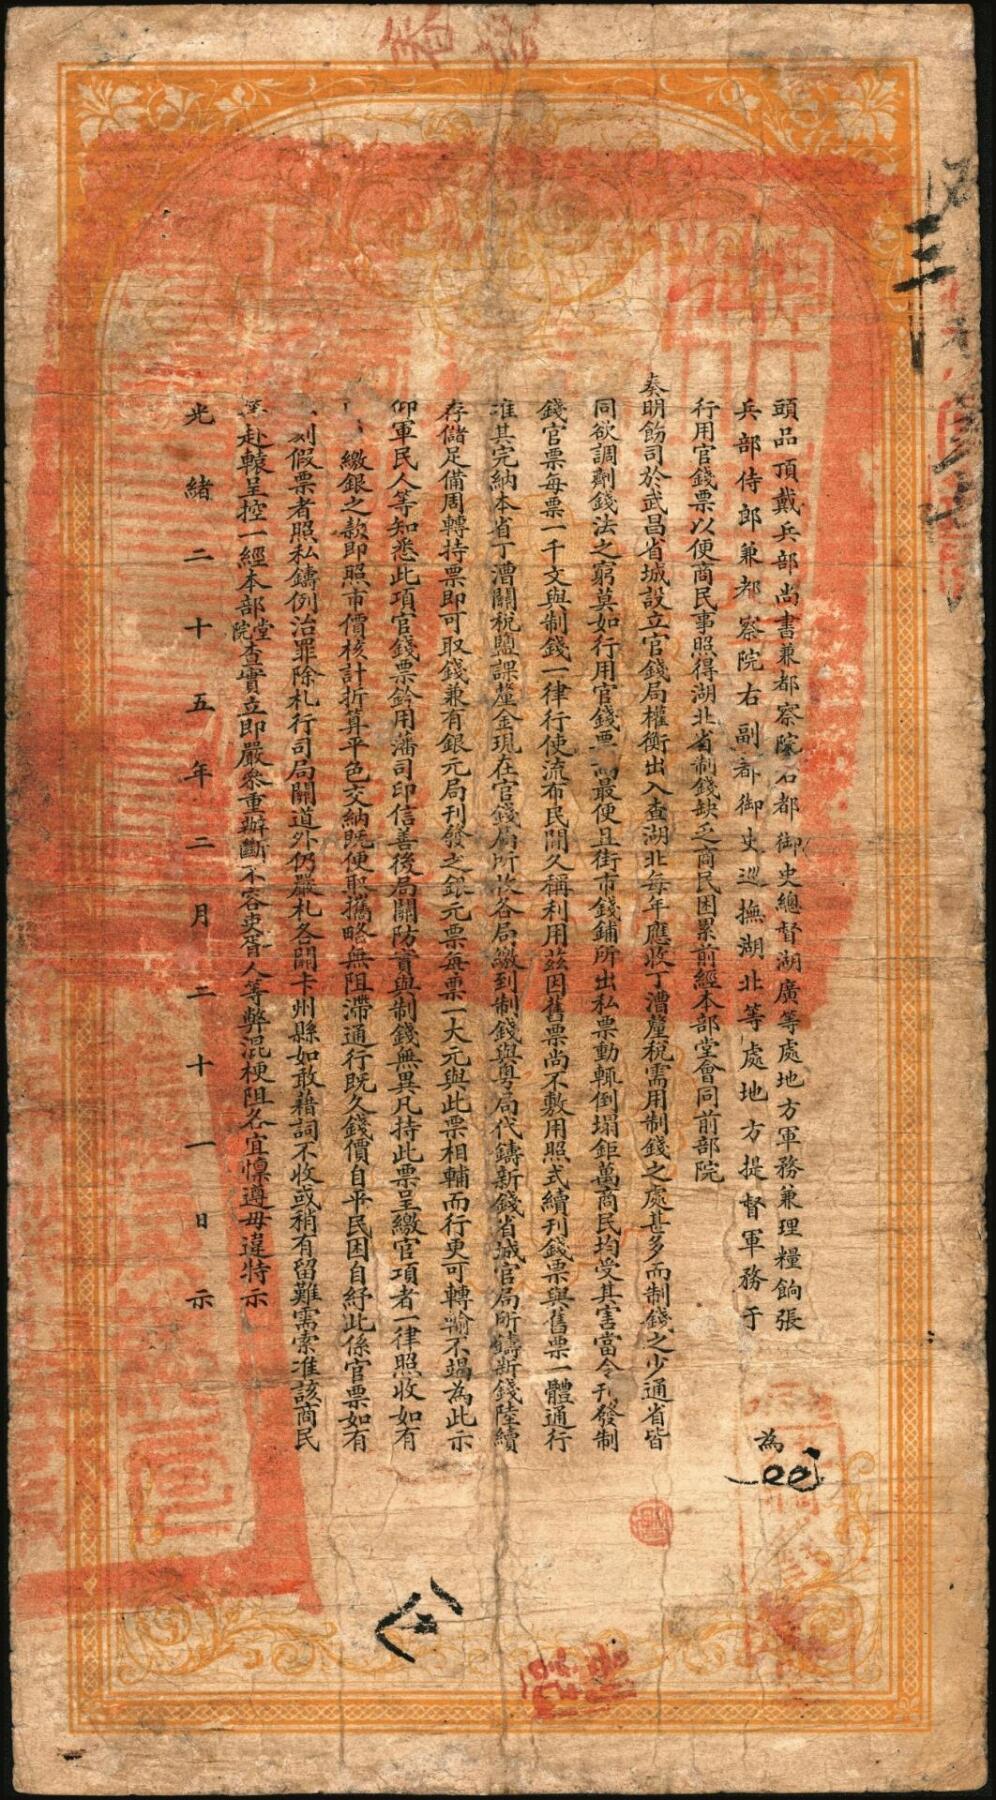 頭品頂戴兵部尚書兼都察院右都御史總督湖廣等處地方軍務兼理糧餉張
兵部侍郎兼都察院右副都御史巡撫湖北等處地方提督軍務于
為
行用官錢票以便商民事照得湖北省制錢缺乏商民困累前經本部堂會同前部院
奏明飭司於武昌省城設立官錢局權衡出入查湖北每年應收丁漕釐稅需用制錢之處甚多而制錢之少通省皆
同欲調劑錢法之窮莫如行用官錢票為最便且街市錢鋪所出私票動輒倒塌鉅萬商民均受其害當令刊發制
錢官票每票一千文與制錢一律行使流布民間久稱利用茲因舊票尚不敷用照式續刊錢票與舊票一體通行
准其完納本省丁漕關稅鹽課釐金現在官錢局所收各局繳到制錢與粵局代鑄新錢省城官局所鑄新錢陸續
存儲足備周轉持票即可取錢兼有銀元局刊發之銀元票每票一大元與此票相輔而行更可轉輸不竭為此示
仰軍民人等知悉此項官錢票鈐用藩司印信善後局關防實與制錢無異凡持此票呈繳官項者一律照收如有
繳銀之款即照市價核計折算平色交納既便取攜略無阻滯通行既久錢價自平民困自紓此係官票如有
刻假票者照私鑄例治罪除札行司局關道外仍嚴札各關卡州縣如敢藉詞不收或稍有留難需索准該商民
赴轅呈控一經本部堂院查實立即嚴參重辦斷不容吏胥人等弊混梗阻各宜懍遵毋違特示
光緒二十五年二月二十一日示